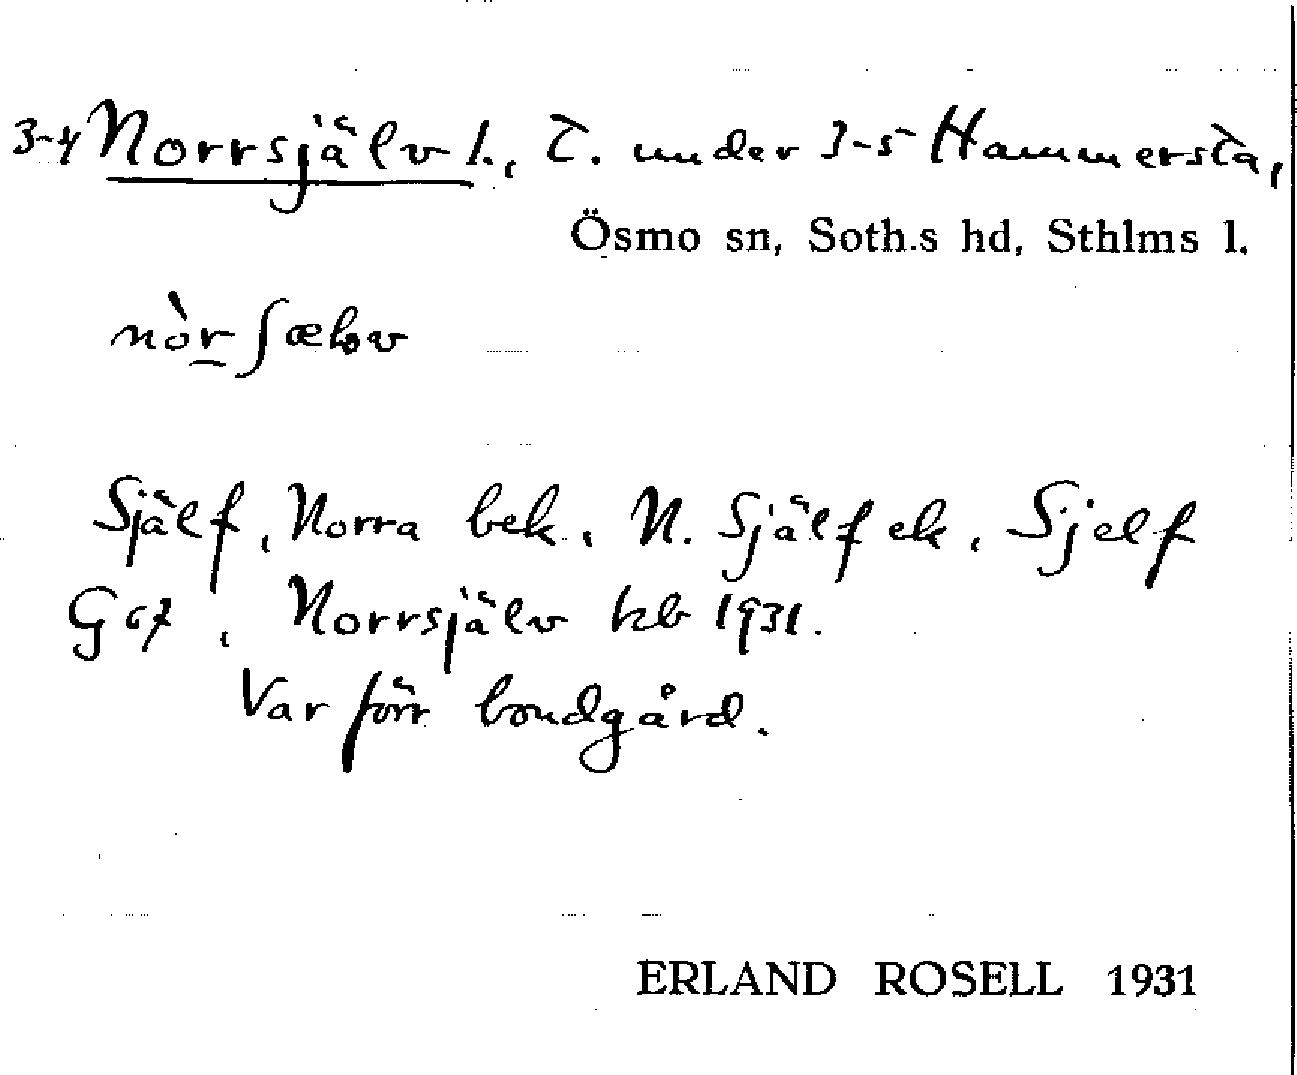 3-4 Norrsjälv 1., T. under 3-5 Hammersta,
Ösmo sn, Soth.s hd, Sthlms l.
nòr ʃælv
Själf, Norra bek., N. Själf ek., Sjelf
G 67, Norrsjälv kb 1931.
Var förr bondgård.
ERLAND ROSELL 1931